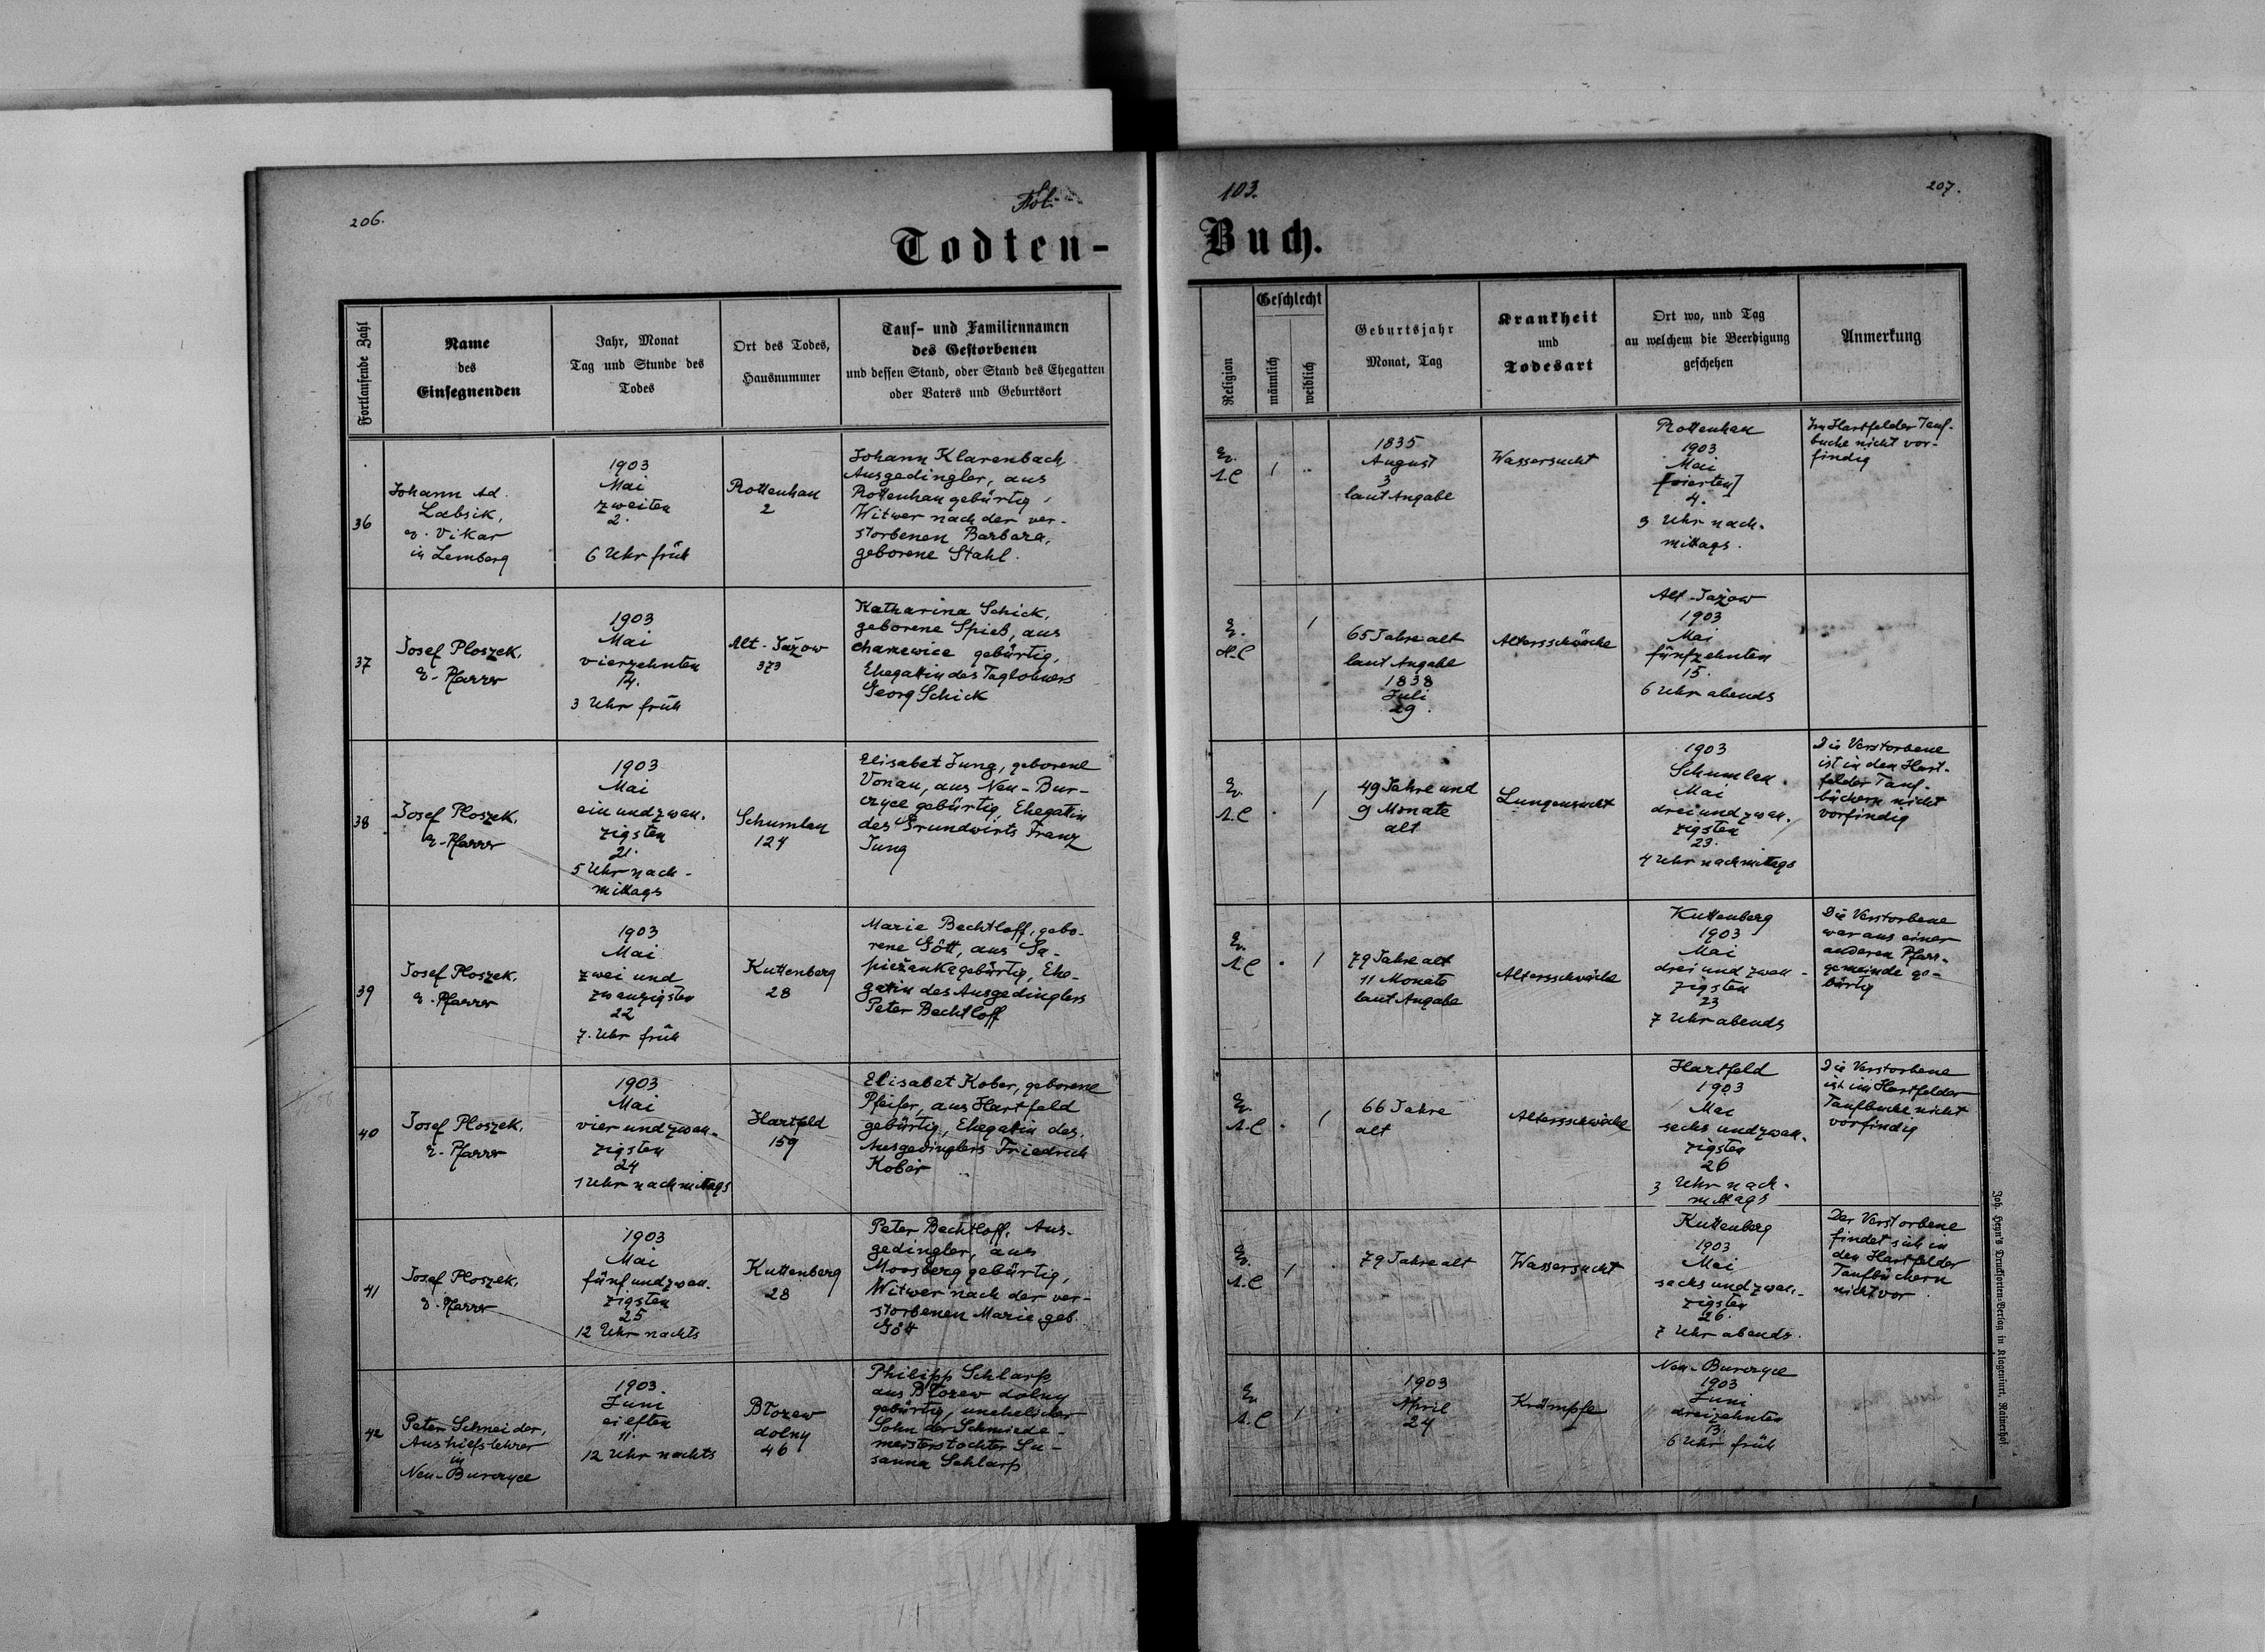 206.
Fol.
103.
207.
Todten-
Buch.
Fortlaufende Zahl
Name
des
Einsegnenden
Jahr, Monat
Tag und Stunde des
Todes
Ort des Todes,
Hausnummer
Tauf- und Familiennamen
des Gestorbenen
und dessen Stand, oder Stand des Ehegatten
oder Vaters und Geburtsort
Religion
Geschlecht
männlich
weiblich
Geburtsjahr
Monat, Tag
Krankheit
und
Todesart
Ort wo, und Tag
an welchem die Beerdigung
geschehen
Anmerkung
36
Johann Ad.
Labsik,
ev. Vikar
in Lemberg
1903
Mai
zweiten
2.
6 Uhr früh
Rottenhan
2
Johann Klarenbach
Ausgedingler, aus
Rottenhan gebürtig,
Witwer nach der ver-
storbenen Barbara,
geborene Stahl.
Ev.
A.C
1
1835
August
3
laut Angabe
Wassersucht
Rottenhan
1903
Mai
[vierten]
4.
3 Uhr nach-
mittags.
Im Hartfelder Tauf-
buche nicht vor-
findig
37
Josef Ploszek,
ev. Pfarrer
1903
Mai
vierzehnten
14.
3 Uhr früh
Alt-Jażow
373
Katharina Schick,
geborene Spieß, aus
gebürtig,
Ehegattin des Taglöhners
Georg Schick
Ev.
H.C
1
65 Jahre alt
laut Angabe
1838
Juli
29.
Altersschwäche
Alt-Jażow
1903
Mai
fünfzehnten
15.
6 Uhr abends
38
Josef Ploszek,
ev. Pfarrer
1903
Mai
ein und zwan-
zigsten
21.
5 Uhr nach-
mittags
Schumlau
124
Elisabet Jung, geborene
Vonau, aus Neu-Bur-
czyce gebürtig, Ehegattin
des Grundwirts Franz
Jung
Ev.
A.C
1
49 Jahre und
9 Monate
alt
Lungensucht
1903
Schumlau
Mai
drei und zwan-
zigsten
23.
4 Uhr nachmittags
Die Verstorbene
ist in den Hart-
felder Tauf-
büchern nicht
vorfindig
39
Josef Ploszek,
ev. Pfarrer
1903
Mai
zwei und
zwanzigsten
22
7. Uhr früh
Kuttenberg
28
Marie Bechtloff, gebo-
rene Gött, aus Sa-
pieżanka gebürtig, Ehe-
gattin des Ausgedinglers
Peter Bechtloff
Ev.
A.C
1
79 Jahre alt
11 Monate
laut Angabe
Altersschwäche
Kuttenberg
1903
Mai
drei und zwan-
zigsten
23
7 Uhr abends
Die Verstorbene
war aus einer
anderen Pfarr-
gemeinde ge-
bürtig
40
Josef Ploszek,
ev. Pfarrer
1903
Mai
vier und zwan-
zigsten
24
1 Uhr nachmittags
Hartfeld
159
Elisabet Kober, geborene
Pfeifer, aus Hartfeld
gebürtig, Ehegattin des
Ausgedinglers Friedrich
Kober
Ev.
A.C
1
66 Jahre
alt
Altersschwäche
Hartfeld
1903
Mai
sechs und zwan-
zigsten
26
3 Uhr nach-
mittags
Die Verstorbene
ist im Hartfelder
Taufbuche nicht
vorfindig
41
Josef Ploszek,
ev. Pfarrer
1903
Mai
fünf und zwan-
zigsten
25
12 Uhr nachts
Kuttenberg
28
Peter Bechtloff, Aus-
gedingler, aus
Moosberg gebürtig,
Witwer nach der ver-
storbenen Marie geb.
Gött
Ev.
A.C
1
79 Jahre alt
Wassersucht
Kuttenberg
1903
Mai
sechs und zwan-
zigsten
26.
7 Uhr abends.
Der Verstorbene
findet sich in
den Hartfelder
Taufbüchern
nicht vor
42
Peter Schneider,
Aushilfslehrer
in
Neu-Burczyce
1903.
Juni
eilften
11.
12 Uhr nachts
Błozew
dolny
46
Philipp Schlarp
aus Błozew dolny
gebürtig, unehelicher
Sohn der Schmiede-
meisterstochter Su-
sanna Schlarp
Ev.
A.C
1
1903
April
24
Krämpfe
Neu-Burczyce
1903
Juni
dreizehnten
13.
6 Uhr früh
Joh. Heyn's Drucksorten-Verlag in Klagenfurt, Rainerhof